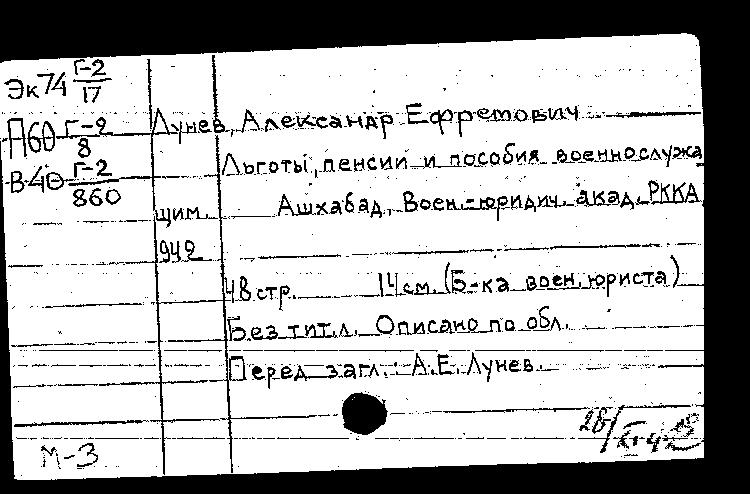 Эк74 Г-2/17
П60 Г-2/8
В40 Г-2/860
Лунев, Александр Ефремович
Льготы, пенсии и пособия военнослужа
щим. Ашхабад, Воен.-юридич. акад. РККА,
942
48 стр. 14 см. (Б-ка воен. юриста)
Без тит. л. Описано по обл.
Перед загл.: А.Е. Лунев.
М-3